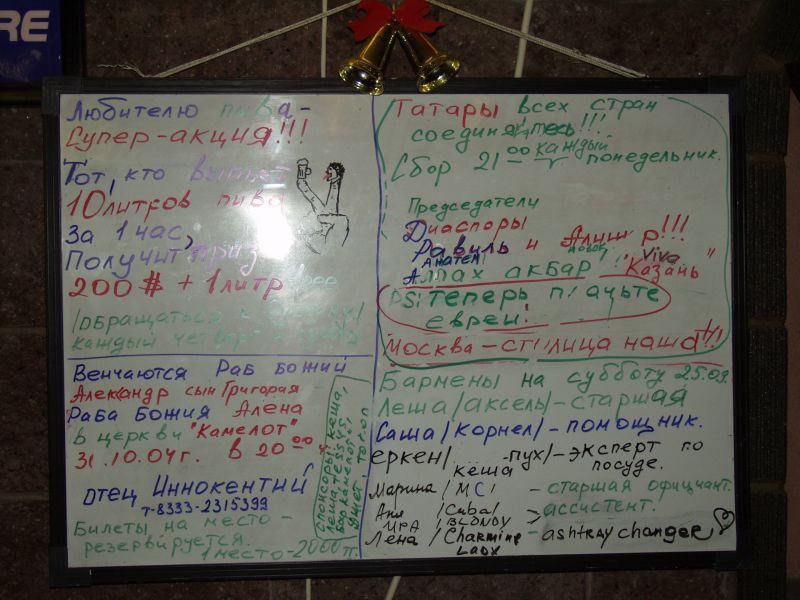 RE
Любителю пива -
Супер-акция!!!
Тот, кто выпьет
10 литров пива
За 1 час,
Получит приз
200 $ + 1 литр
/обращаться к
каждый четверг
Татары всех стран
соединяйтесь!!!
Сбор 21 00 каждый понедельник.
Председатели
Диаспоры
Равиль и Алишер!!!
Аллах акбар "Viva Казань"
PS: теперь плачьте
евреи!
Москва - столица наша!!!
Венчаются Раб Божий
Александр сын Григория
Раба Божия Алена
В церкви "Камелот"
31.10.04г. в 20 00
отец Иннокентий
т-8333-2315399
Билеты на место -
резервируется.
1 место - 2000 т.
спонсоры: кеша,
Бармены на субботу 25.09.
Леша/аксель/-старшая
Саша/корнел/-помощник.
еркен/кеша -пух/-эксперт по
посуде.
Марина/MCi -старшая официант.
Аня /Cuba/
ИРА /BLONDY > ассистент.
Лена/Charming Lady -ashtray changer